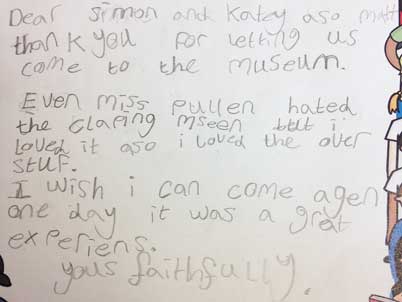 Dear simon and Katey aso matt
thank you for letting us
come to the museum.
Even miss pullen hated
the claping mseen but i
loved it aso i loved the over
stuf.
I wish i can come agen
one day it was a grat
experiens.
yous faithfully.